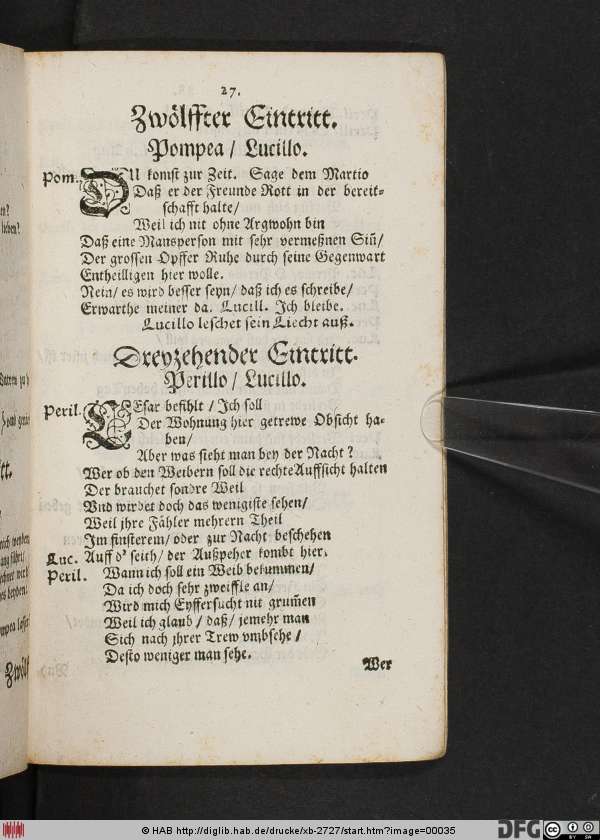 27.
Zwölffter Eintritt.
Pompea / Lucillo.
Pom. DU komst zur Zeit. Sage dem Martio
Daß er der Freunde Rott in der bereit-
schafft halte/
Weil ich nit ohne Argwohn bin
Daß eine Mansperson mit sehr vermeßnen Siñ/
Der grossen Opffer Ruhe durch seine Gegenwart
Entheilligen hier wolle.
Nein/ es wird besser seyn/ daß ich es schreibe/
Erwarthe meiner da. Lucill. Ich bleibe.
Lucillo leschet sein Liecht auß.
Dreyzehender Eintritt.
Perillo / Lucillo.
Peril. CEsar befihlt / Ich soll
Der Wohnung hier getrewe Obsicht ha-
ben/
Aber was sieht man bey der Nacht?
Wer ob den Weibern soll die rechte Auffsicht halten
Der brauchet sondre Weil
Vnd wirdet doch das wenigiste sehen/
Weil jhre Fähler mehrern Theil
Im finsterem/ oder zur Nacht beschehen
Luc. Auff d' seith/ der Außpeher kombt hier.
Peril. Wann ich soll ein Weib bekummen/
Da ich doch sehr zweiffle an/
Wird mich Eyffersucht nit grum̃en
Weil ich glaub / daß/ jemehr man
Sich nach jhrer Trew vmbsehe /
Desto weniger man sehe.
Wer
nen?
lieben?
tt.
Zwölf
© HAB http://diglib.hab.de/drucke/xb-2727/start.htm?image=00035
DFG
BY SA